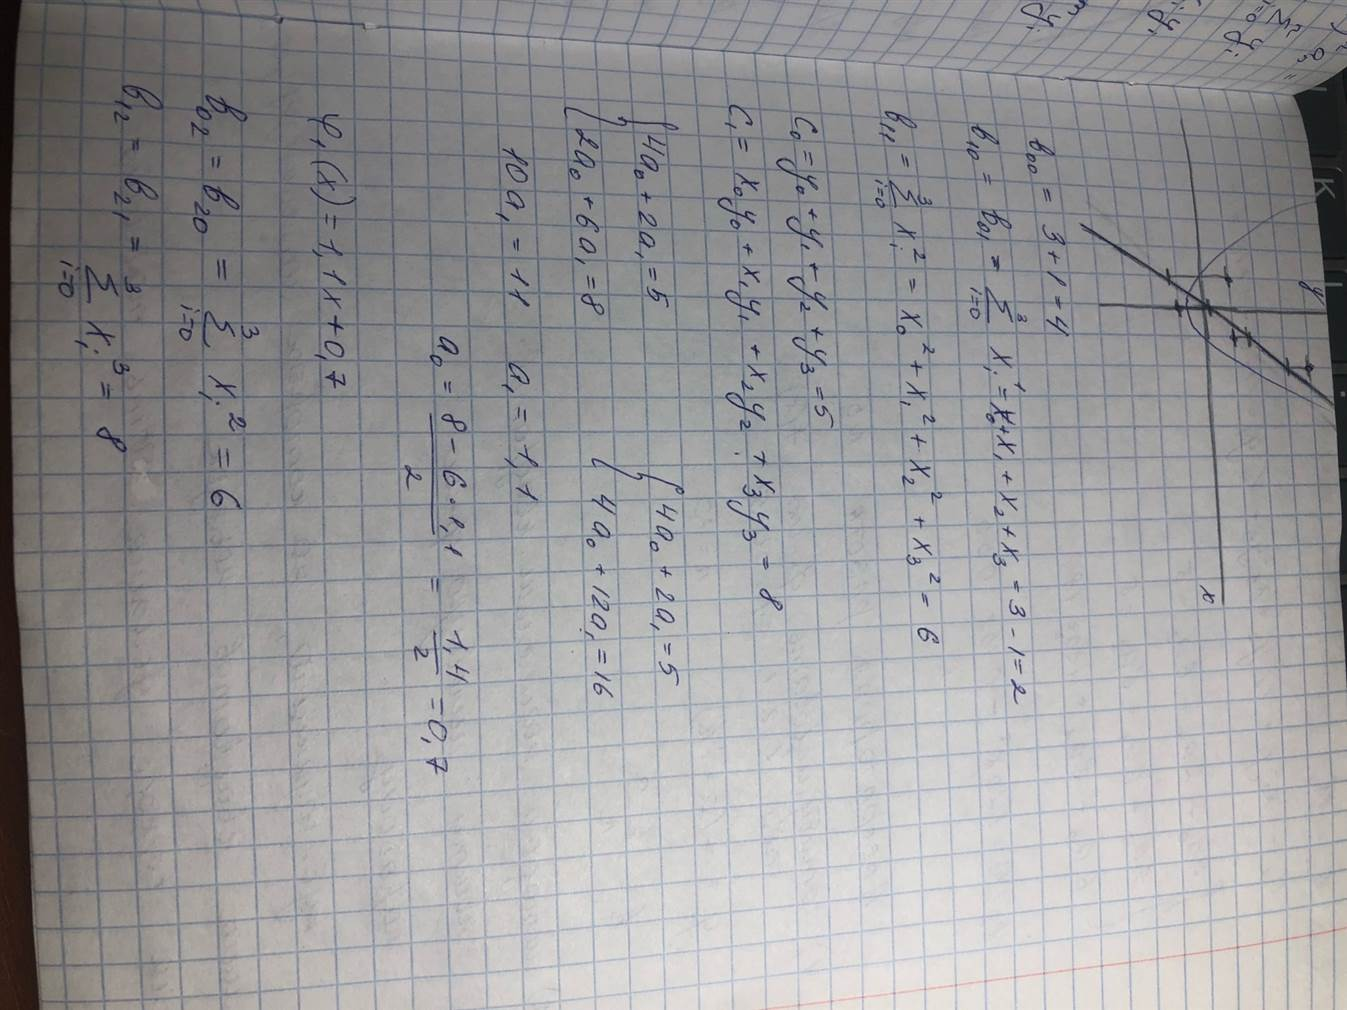 y
x
b₀₀ = 3+1=4
b₁₀ = b₀₁ = ³Σᵢ₌₀ xᵢ¹ = x₀+x₁+x₂+x₃ = 3-1=2
b₁₁ = ³Σᵢ₌₀ xᵢ² = x₀² + x₁² + x₂² + x₃² = 6
c₀ = y₀ + y₁ + y₂ + y₃ = 5
c₁ = x₀y₀ + x₁y₁ + x₂y₂ + x₃y₃ = 8
{4a₀ + 2a₁ = 5 {4a₀ + 2a₁ = 5
{2a₀ + 6a₁ = 8 {4a₀ + 12a₁ = 16
10a₁ = 11 a₁ = 1,1
a₀ = (8 - 6·1,1)/2 = 1,4/2 = 0,7
φ₁(x) = 1,1x + 0,7
b₀₂ = b₂₀ = ³Σᵢ₌₀ xᵢ² = 6
b₁₂ = b₂₁ = ³Σᵢ₌₀ xᵢ³ = 8